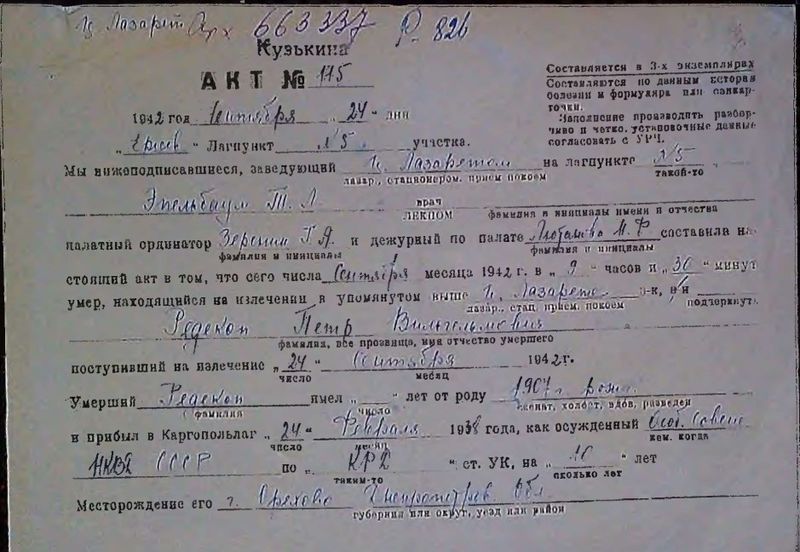 Ц. Лазарет Арх 663337 Р-826
Кузькина
АКТ № 115
Составляется в 3-х экземплярах
Составляются по данным истории
болезни и формуляра или санкар-
точки.
Заполнение производить разбор-
чиво и четко, установочные данные
согласовать с УРЧ.
1942 год Сентября „ 24 „ дни
„ “ Лагпункт № 5 участка.
Мы нижеподписавшиеся, заведующий Ц. Лазаретом на лагпункте № 5
лазар., стационером, прием покоем такой-то
Эпельбаум Т. Л. врач
ЛЕКПОМ фамилия и инициалы имени и отчества
палатный ординатор Г. Я. и дежурный по палате М. Ф составила на-
фамилия и инициалы фамилия и инициалы
стоящий акт в том, что сего числа Сентября месяца 1942 г. в „ 9 “ часов и „ 30 “ минут
умер, находящийся на излечении в упомянутом выше Ц. Лазарете з-к,
лазар., стац. прием. покоем подчеркнуть
Редекоп Петр Вильгельмович
фамилия, все прозвища, имя отчество умершего
поступивший на излечение „ 24 “ Сентября 1942 г.
число месяц
Умерший Редекоп имел „ “ лет от роду 1907 г. женат
фамилия число женат, холост, вдов, разведен
и прибыл в Каргопольлаг „ 24 “ Февраля 1938 года, как осужденный Особ. Совещ.
число месяц кем, когда
НКВД СССР по „ КРД “ ст. УК, на „ 10 “ лет
таким-то сколько лет
Месторождение его г. Орехово Днепропетров. Обл
губерния или округ, уезд или район